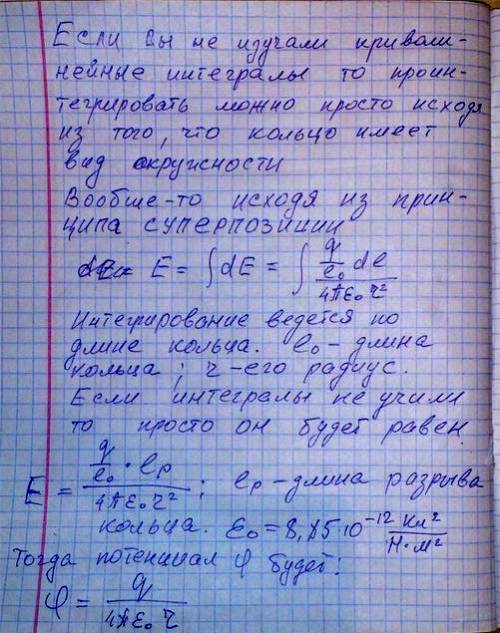 Если вы не изучали криволи-
нейные интегралы то проин-
тегрировать можно просто исходя
из того, что кольцо имеет
вид окружности
Вообще-то исходя из прин-
ципа суперпозиции
E = ∫dE = ∫ (q/ℓ₀ dℓ)/(4πε₀r²)
Интегрирование ведется по
длине кольца. ℓ₀ - длина
кольца ; r - его радиус.
Если интегралы не учили
то просто он будет равен
E = (q/ℓ₀ · ℓр)/(4πε₀r²) ; ℓр - длина разрыва
кольца. ε₀ = 8,85·10⁻¹² Кл²/Н·м²
Тогда потенциал φ будет:
φ = q/(4πε₀r)